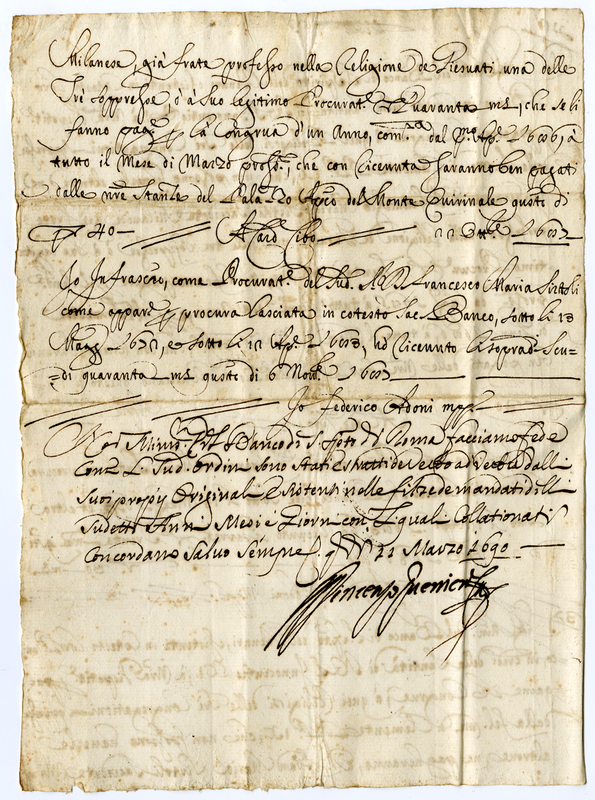 Milanese, già frate professo nella Religione de Giesuati una delle
Trè soppresse, ò à suo legitimo Procurat.e Quaranta m.ta, che se li
fanno pag.re p la Congrua d'un Anno, com.ta dal p.mo Ap.le 1686, à
tutto il Mese di Marzo pross.o, che con ricevuta saranno ben pagati
dalle n're Stanze del Palazzo Ap.co del Monte Quirinale questo dì
40 Card Cibo 22 168
Io Infrascritto, come Procurat.e del Sud. Francesco Maria Sirtoli
come appare p procura lasciata in cotesto Sac. Banco, sotto li 13
Magg. 167, e sotto li 12 Ap.le 1683, hò ricevuto li soprad. Scu-
di quaranta m.ta questo dì 6 Nov.e 168
Io Federico mpp
Noi Ministri del Banco di S. Spto di Roma facciamo fede
Come L. Sud. Ordini sono stati estratti de verbo ad verbum dalli
suoi proprij Originali Esistenti nelle filze de mandati delli
sudetti Anni Mesi e Giorni con li quali Collationati
Concordano Salvo Sempre q. dì 21 Marzo 1690
Vincenzo